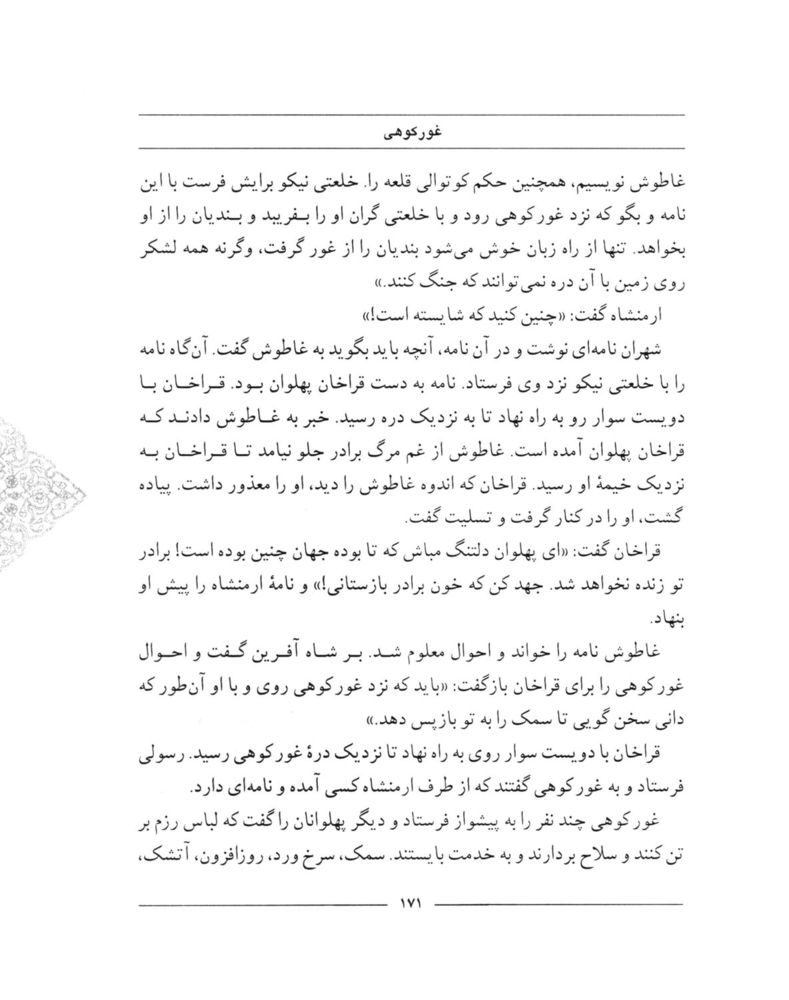 غورکوهی
غاطوش نویسیم، همچنین حکم کوتوالی قلعه را. خلعتی نیکو برایش فرست با این
نامه و بگو که نزد غورکوهی رود و با خلعتی گران او را بفریبد و بندیان را از او
بخواهد. تنها از راه زبان خوش می‌شود بندیان را از غور گرفت، وگرنه همه لشکر
روی زمین با آن دره نمی‌توانند که جنگ کنند.»
ارمنشاه گفت: «چنین کنید که شایسته است!»
شهران نامه‌ای نوشت و در آن نامه، آنچه باید بگوید به غاطوش گفت. آن‌گاه نامه
را با خلعتی نیکو نزد وی فرستاد. نامه به دست قراخان پهلوان بود. قراخان با
دویست سوار رو به راه نهاد تا به نزدیک دره رسید. خبر به غاطوش دادند که
قراخان پهلوان آمده است. غاطوش از غم مرگ برادر جلو نیامد تا قراخان به
نزدیک خیمهٔ او رسید. قراخان که اندوه غاطوش را دید، او را معذور داشت. پیاده
گشت، او را در کنار گرفت و تسلیت گفت.
قراخان گفت: «ای پهلوان دلتنگ مباش که تا بوده جهان چنین بوده است! برادر
تو زنده نخواهد شد. جهد کن که خون برادر بازستانی!» و نامهٔ ارمنشاه را پیش او
بنهاد.
غاطوش نامه را خواند و احوال معلوم شد. بر شاه آفرین گفت و احوال
غورکوهی را برای قراخان بازگفت: «باید که نزد غورکوهی روی و با او آن‌طور که
دانی سخن گویی تا سمک را به تو بازپس دهد.»
قراخان با دویست سوار روی به راه نهاد تا نزدیک درهٔ غورکوهی رسید. رسولی
فرستاد و به غورکوهی گفتند که از طرف ارمنشاه کسی آمده و نامه‌ای دارد.
غورکوهی چند نفر را به پیشواز فرستاد و دیگر پهلوانان را گفت که لباس رزم بر
تن کنند و سلاح بردارند و به خدمت بایستند. سمک، سرخ ورد، روزافزون، آتشک،
۱۷۱